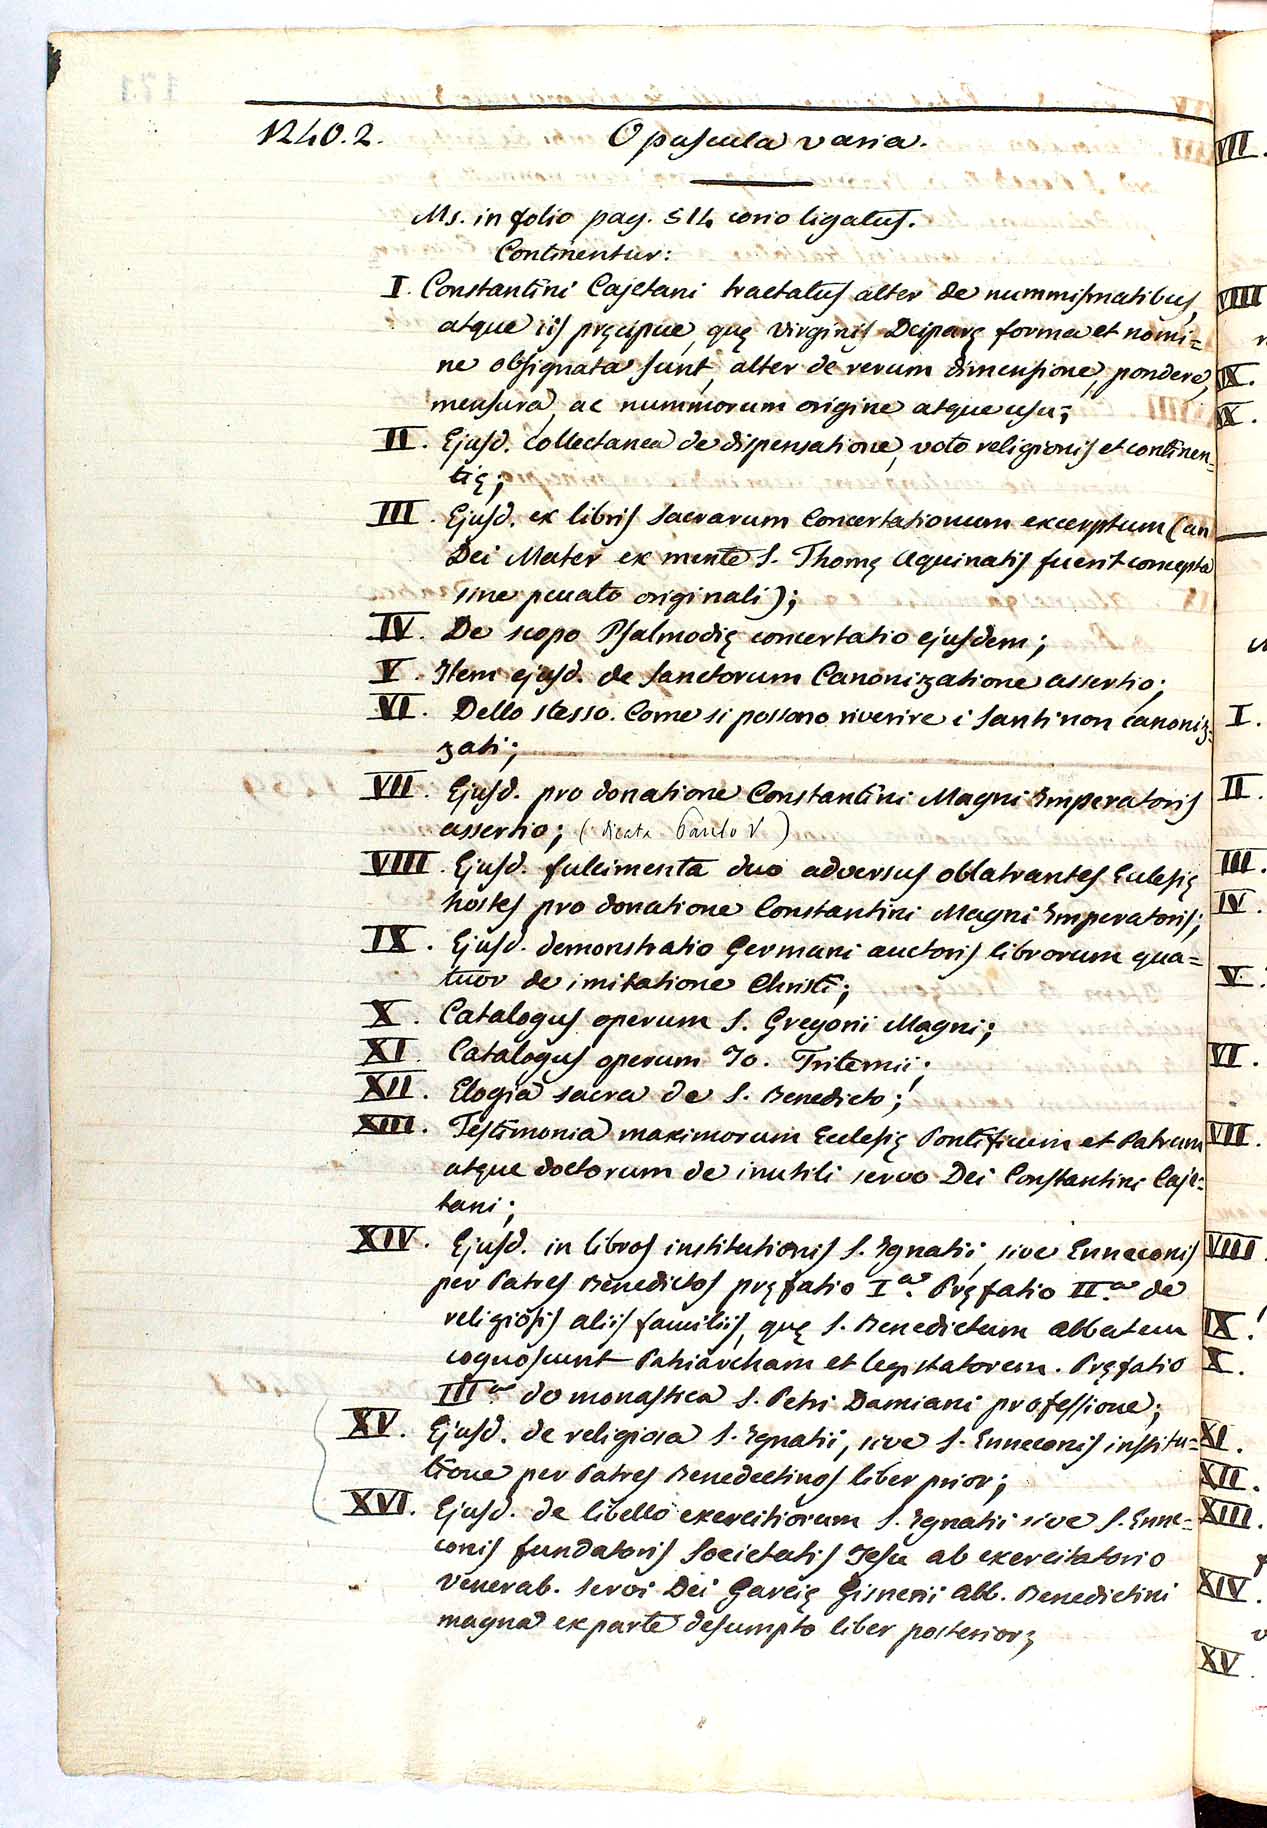 1240.2. Opuscula varia.
Ms. in folio pag. 514 corio ligatus.
Continentur:
I. Constantini Cajetani tractatus alter de nummismatibus,
atque iis pręcipue, quę Virginis Deiparę forma et nomi=
ne obsignata sunt, alter de rerum dimensione, pondere,
mensura, ac nummorum origine atque usu;
II. Ejusd. collectanea de dispensatione, voto religionis et continen=
tię;
III. Ejusd. ex libris Sacrarum Concertationum excerptum (an
Dei Mater ex mente S. Thomę Aquinatis fuerit concepta
sine peccato originali);
IV. De scopo Psalmodię concertatio ejusdem;
V. Item ejusd. de Sanctorum Canonizatione assertio;
VI. Dello stesso. Come si possono riverire i Santi non canoniz=
zati;
VII. Ejusd. pro donatione Constantini Magni Imperatoris
assertio; (dicata Paulo V)
VIII. Ejusd. fulcimenta duo adversus oblatrantes Eclesię
hostes pro donatione Constantini Magni Imperatoris;
IX. Ejusd. demonstratio Germani auctoris librorum qua=
tuor de imitatione Christi;
X. Catalogus operum S. Gregorii Magni;
XI. Catalogus operum Jo. Tritemii;
XII. Elogia sacra de S. Benedicto;
XIII. Testimonia maximorum Eclesię Pontificum et Patrum
atque doctorum de inutili servo Dei Constantini Caje=
tani;
XIV. Ejusd. in libros institutionis S. Ignatii, sive Enneconis
per Patres Benedictos pręfatio Iª. Pręfatio IIª. de
religiosis aliis familiis, quę S. Benedictum abbatem
cognoscunt Patriarcham et legistatorem. Pręfatio
IIIª. de monastica S. Petri Damiani professione;
XV. Ejusd. de religiosa S. Ignatii, sive S. Enneconis institu=
tione per Patres Benedectinos liber prior;
XVI. Ejusd. de libello exercitiorum S. Ignatii sive S. Enne=
conis fundatoris Societatis Jesu ab exercitatorio
venerab. servi Dei Garcię Gisnerii Abb. Benedictini
magna ex parte desumpto liber posterior;
VII.
VIII
IX.
X.
I.
II.
III.
IV.
V.
VI.
VII.
VIII.
IX.
X.
XI.
XII.
XIII.
XIV.
XV.